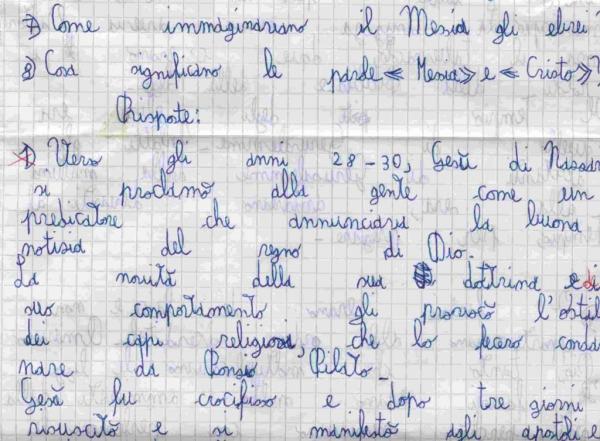 7) Come immaginavano il Messia gli ebrei?
8) Cosa significano le parole « Messia » e « Cristo »?
Risposte:
1) Verso gli anni 28-30, Gesù di Nazar
si proclamò alla gente come un
predicatore che annunciava la buona
notizia del regno di Dio.
La novità della sua dottrina e di
suo comportamento gli provocò l'ostil
dei capi religiosi, che lo fecero conda
nare da Ponzio Pilato
Gesù fu crocifisso e dopo tre giorni
risuscitò e si manifestò agli apostoli e